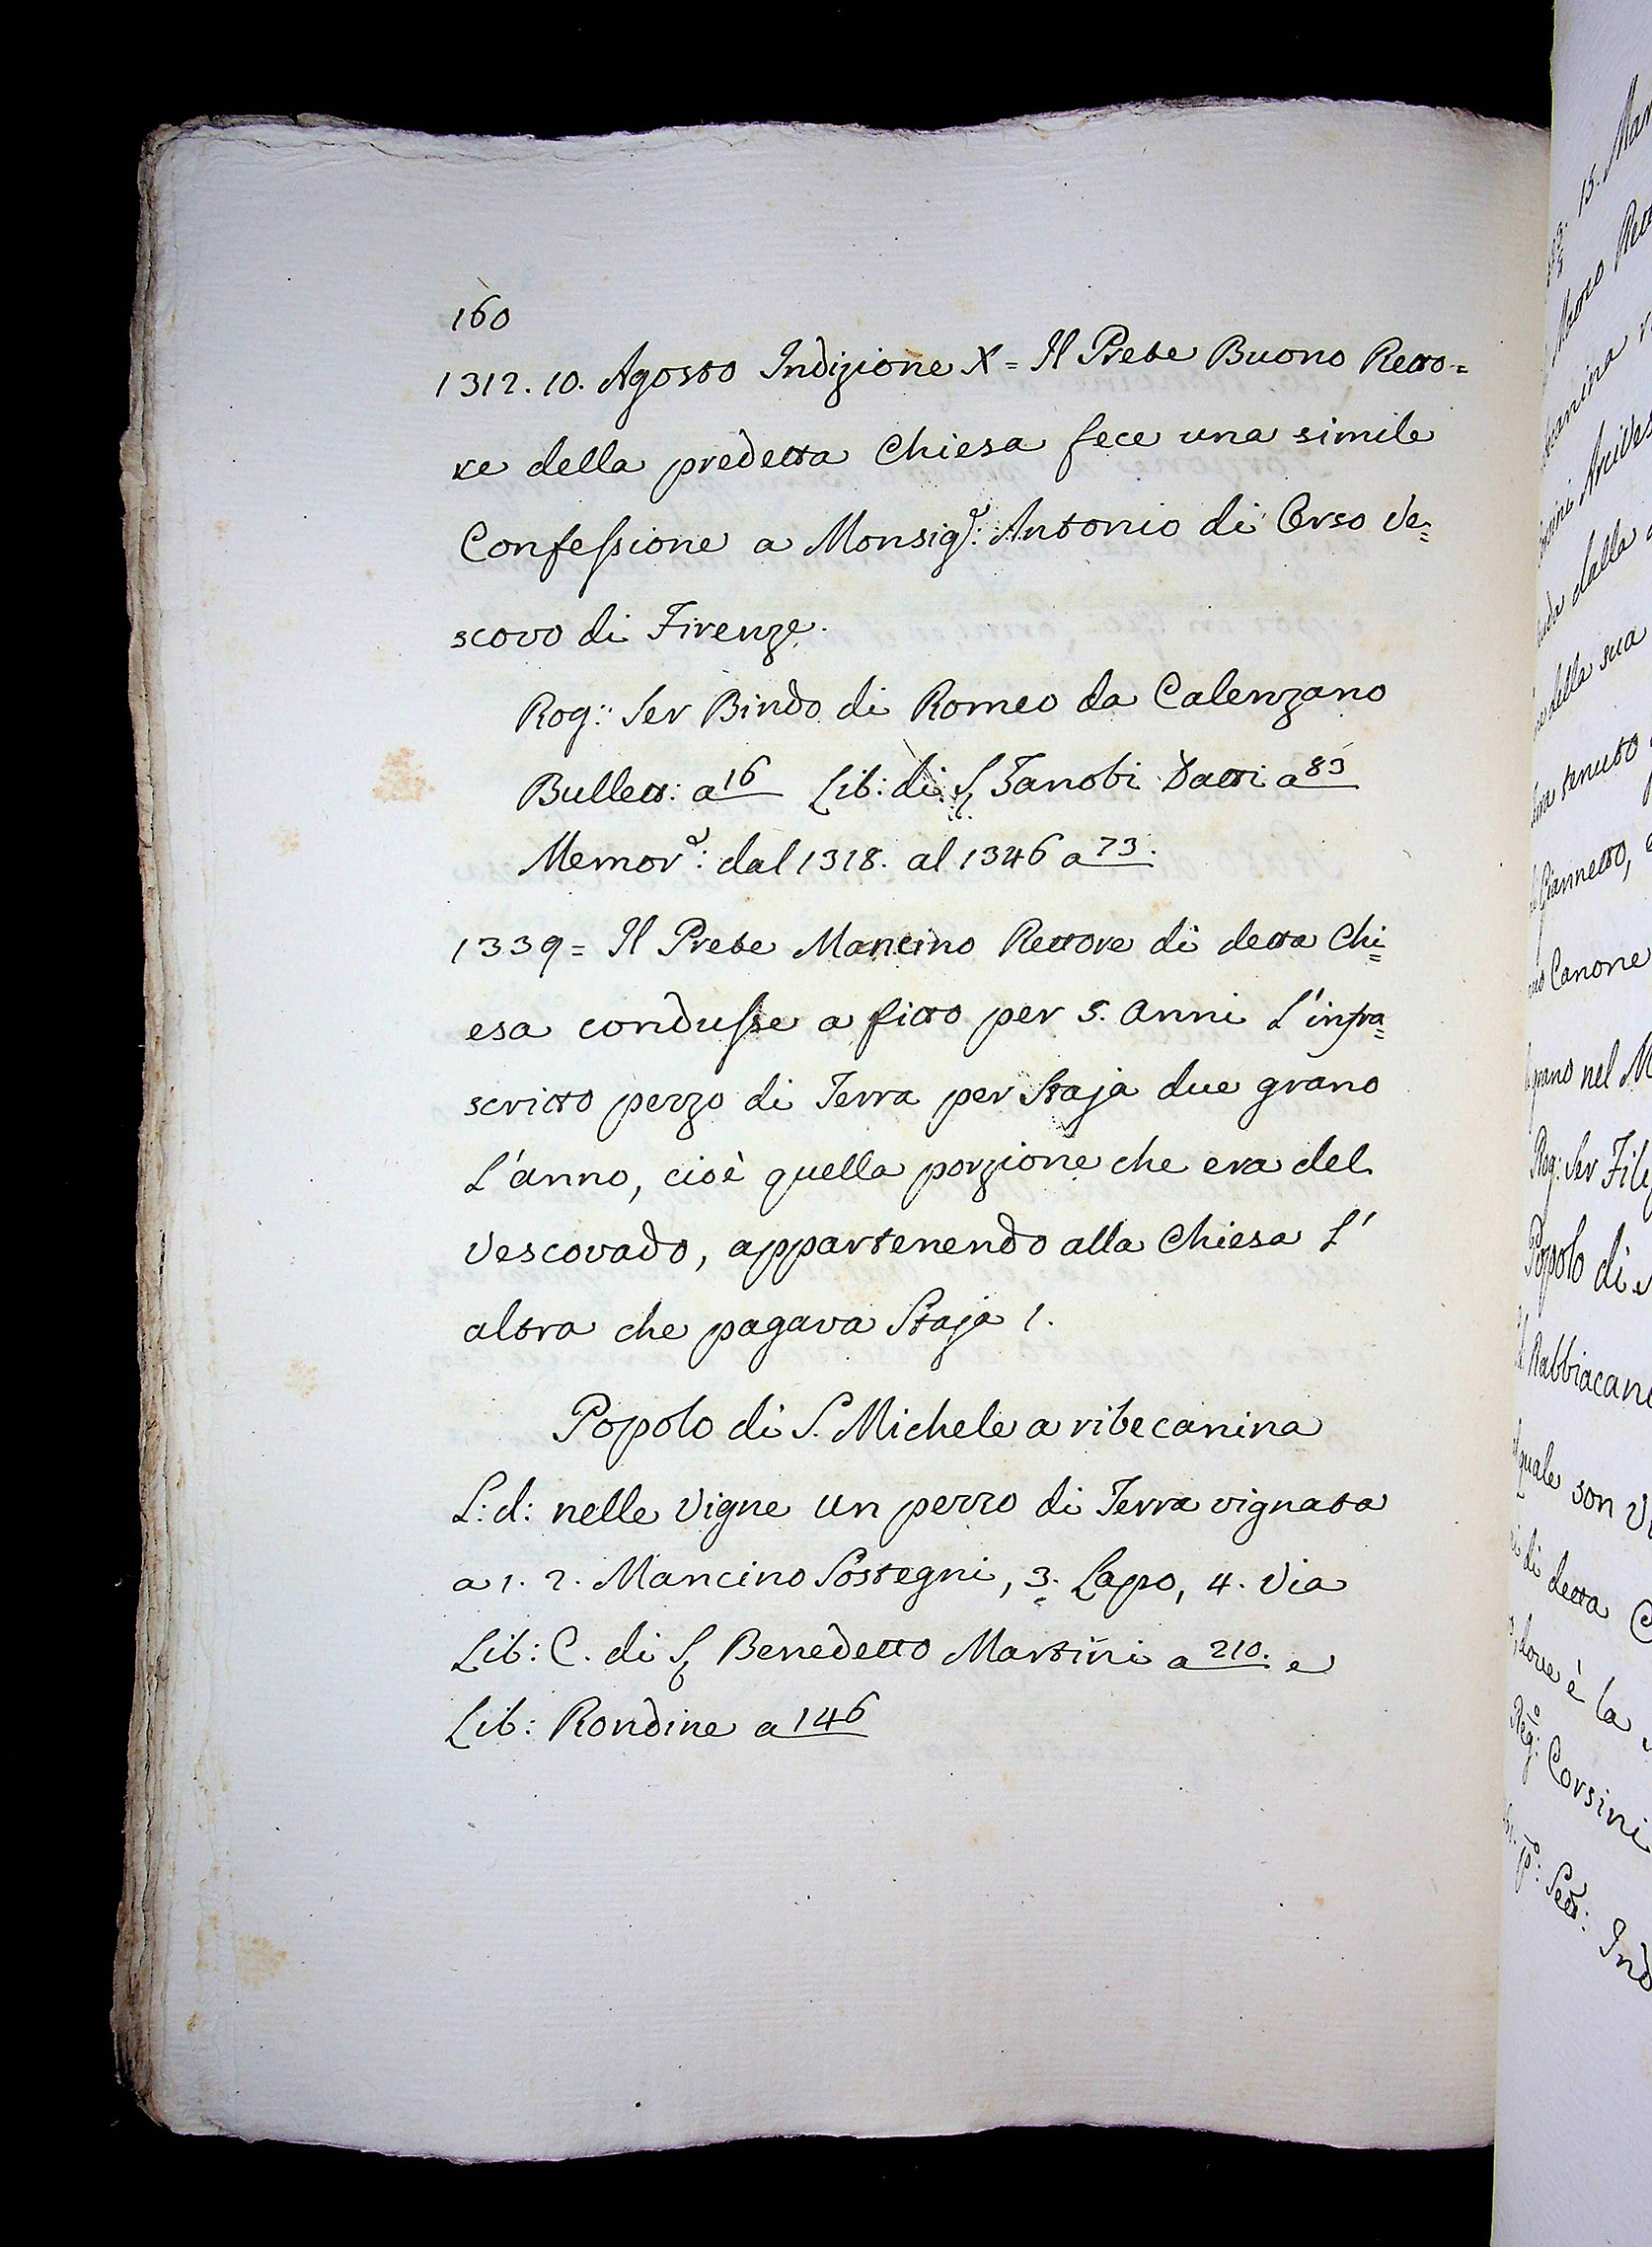 160
1312. 10. Agosto Indizione X = Il Prete Buono Retto=
re della predetta Chiesa fece una simile
Confessione a Monsigr: Antonio di Orso Ve=
scovo di Firenze.
Rog: Ser Bindo di Romeo da Calenzano
Bullett: a 16 Lib: di S. Zanobi Datti a 83
Memor: dal 1318. al 1346 a 73.
1339 = Il Prete Mancino Rettore di detta Chi=
esa condusse a fitto per 5. anni l'infra=
scritto pezzo di Terra per Staja due grano
l'anno, cioè quella porzione che era del
Vescovado, appartenendo alla Chiesa l'
altra che pagava Staja 1.
Popolo di S. Michele a ripecanina
L: d: nelle Vigne un pezzo di Terra vignata
a 1. 2. Mancino Sostegni, 3. Lapo, 4. Via
Lib: C. di S. Benedetto Martini a 210. e
Lib: Rondine a 146
15. Mar
Rett
Arcives
dalla
della sua
tenuto
Giannetto,
Canone
grano nel M
Rog: Ser Fili
Popolo di
Rabbiacane
quale son V
di detta C
dove è la
Reg: Corsini